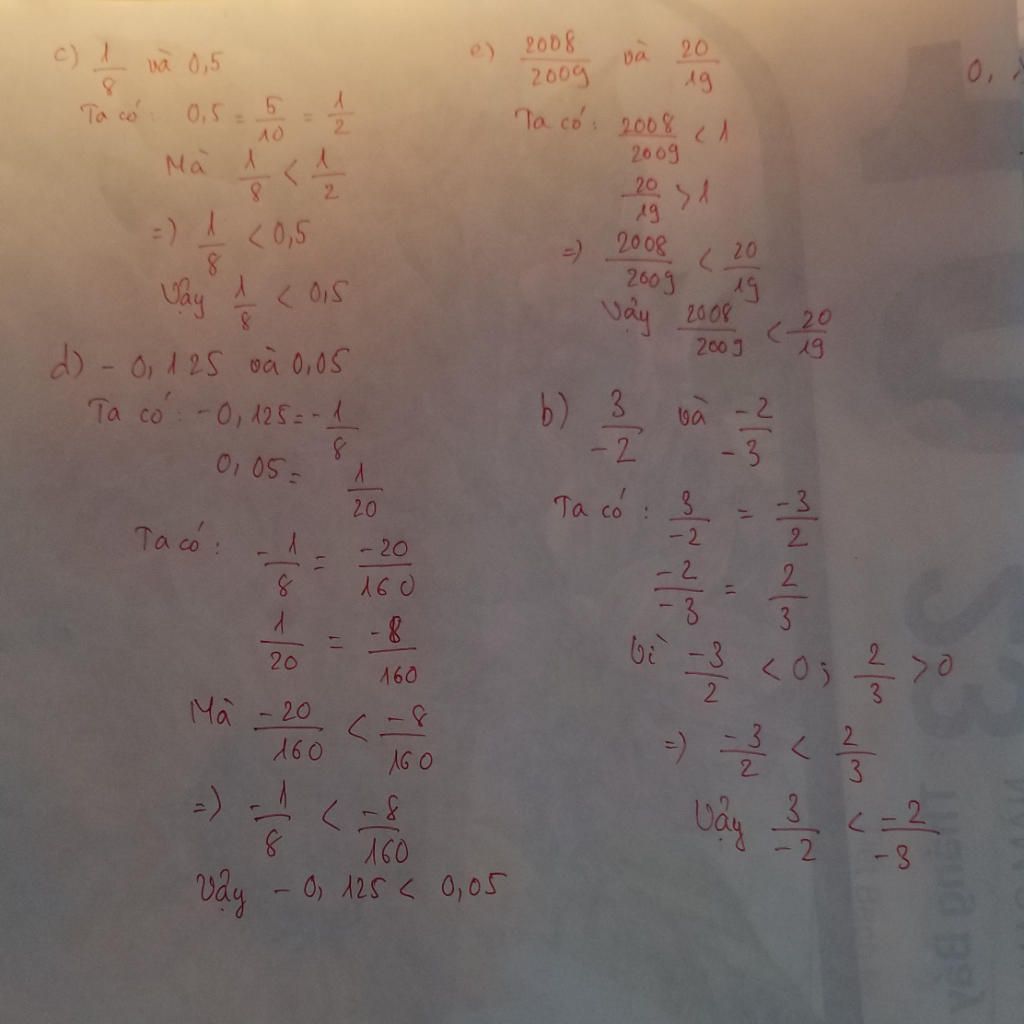 c) 1/8 và 0,5
Ta có: 0,5 = 5/10 = 1/2
Mà 1/8 < 1/2
=) 1/8 < 0,5
Vậy 1/8 < 0,5
d) - 0,125 và 0,05
Ta có: -0,125 = -1/8
0,05 = 1/20
Ta có: -1/8 = -20/160
1/20 = -8/160
Mà -20/160 < -8/160
=) -1/8 < -8/160
Vậy - 0,125 < 0,05
e) 2008/2009 và 20/19
Ta có: 2008/2009 < 1
20/19 > 1
=) 2008/2009 < 20/19
Vậy 2008/2009 < 20/19
b) 3/-2 và -2/-3
Ta có: 3/-2 = -3/2
-2/-3 = 2/3
Vì -3/2 < 0; 2/3 > 0
=) -3/2 < 2/3
Vậy 3/-2 < -2/-3
0,